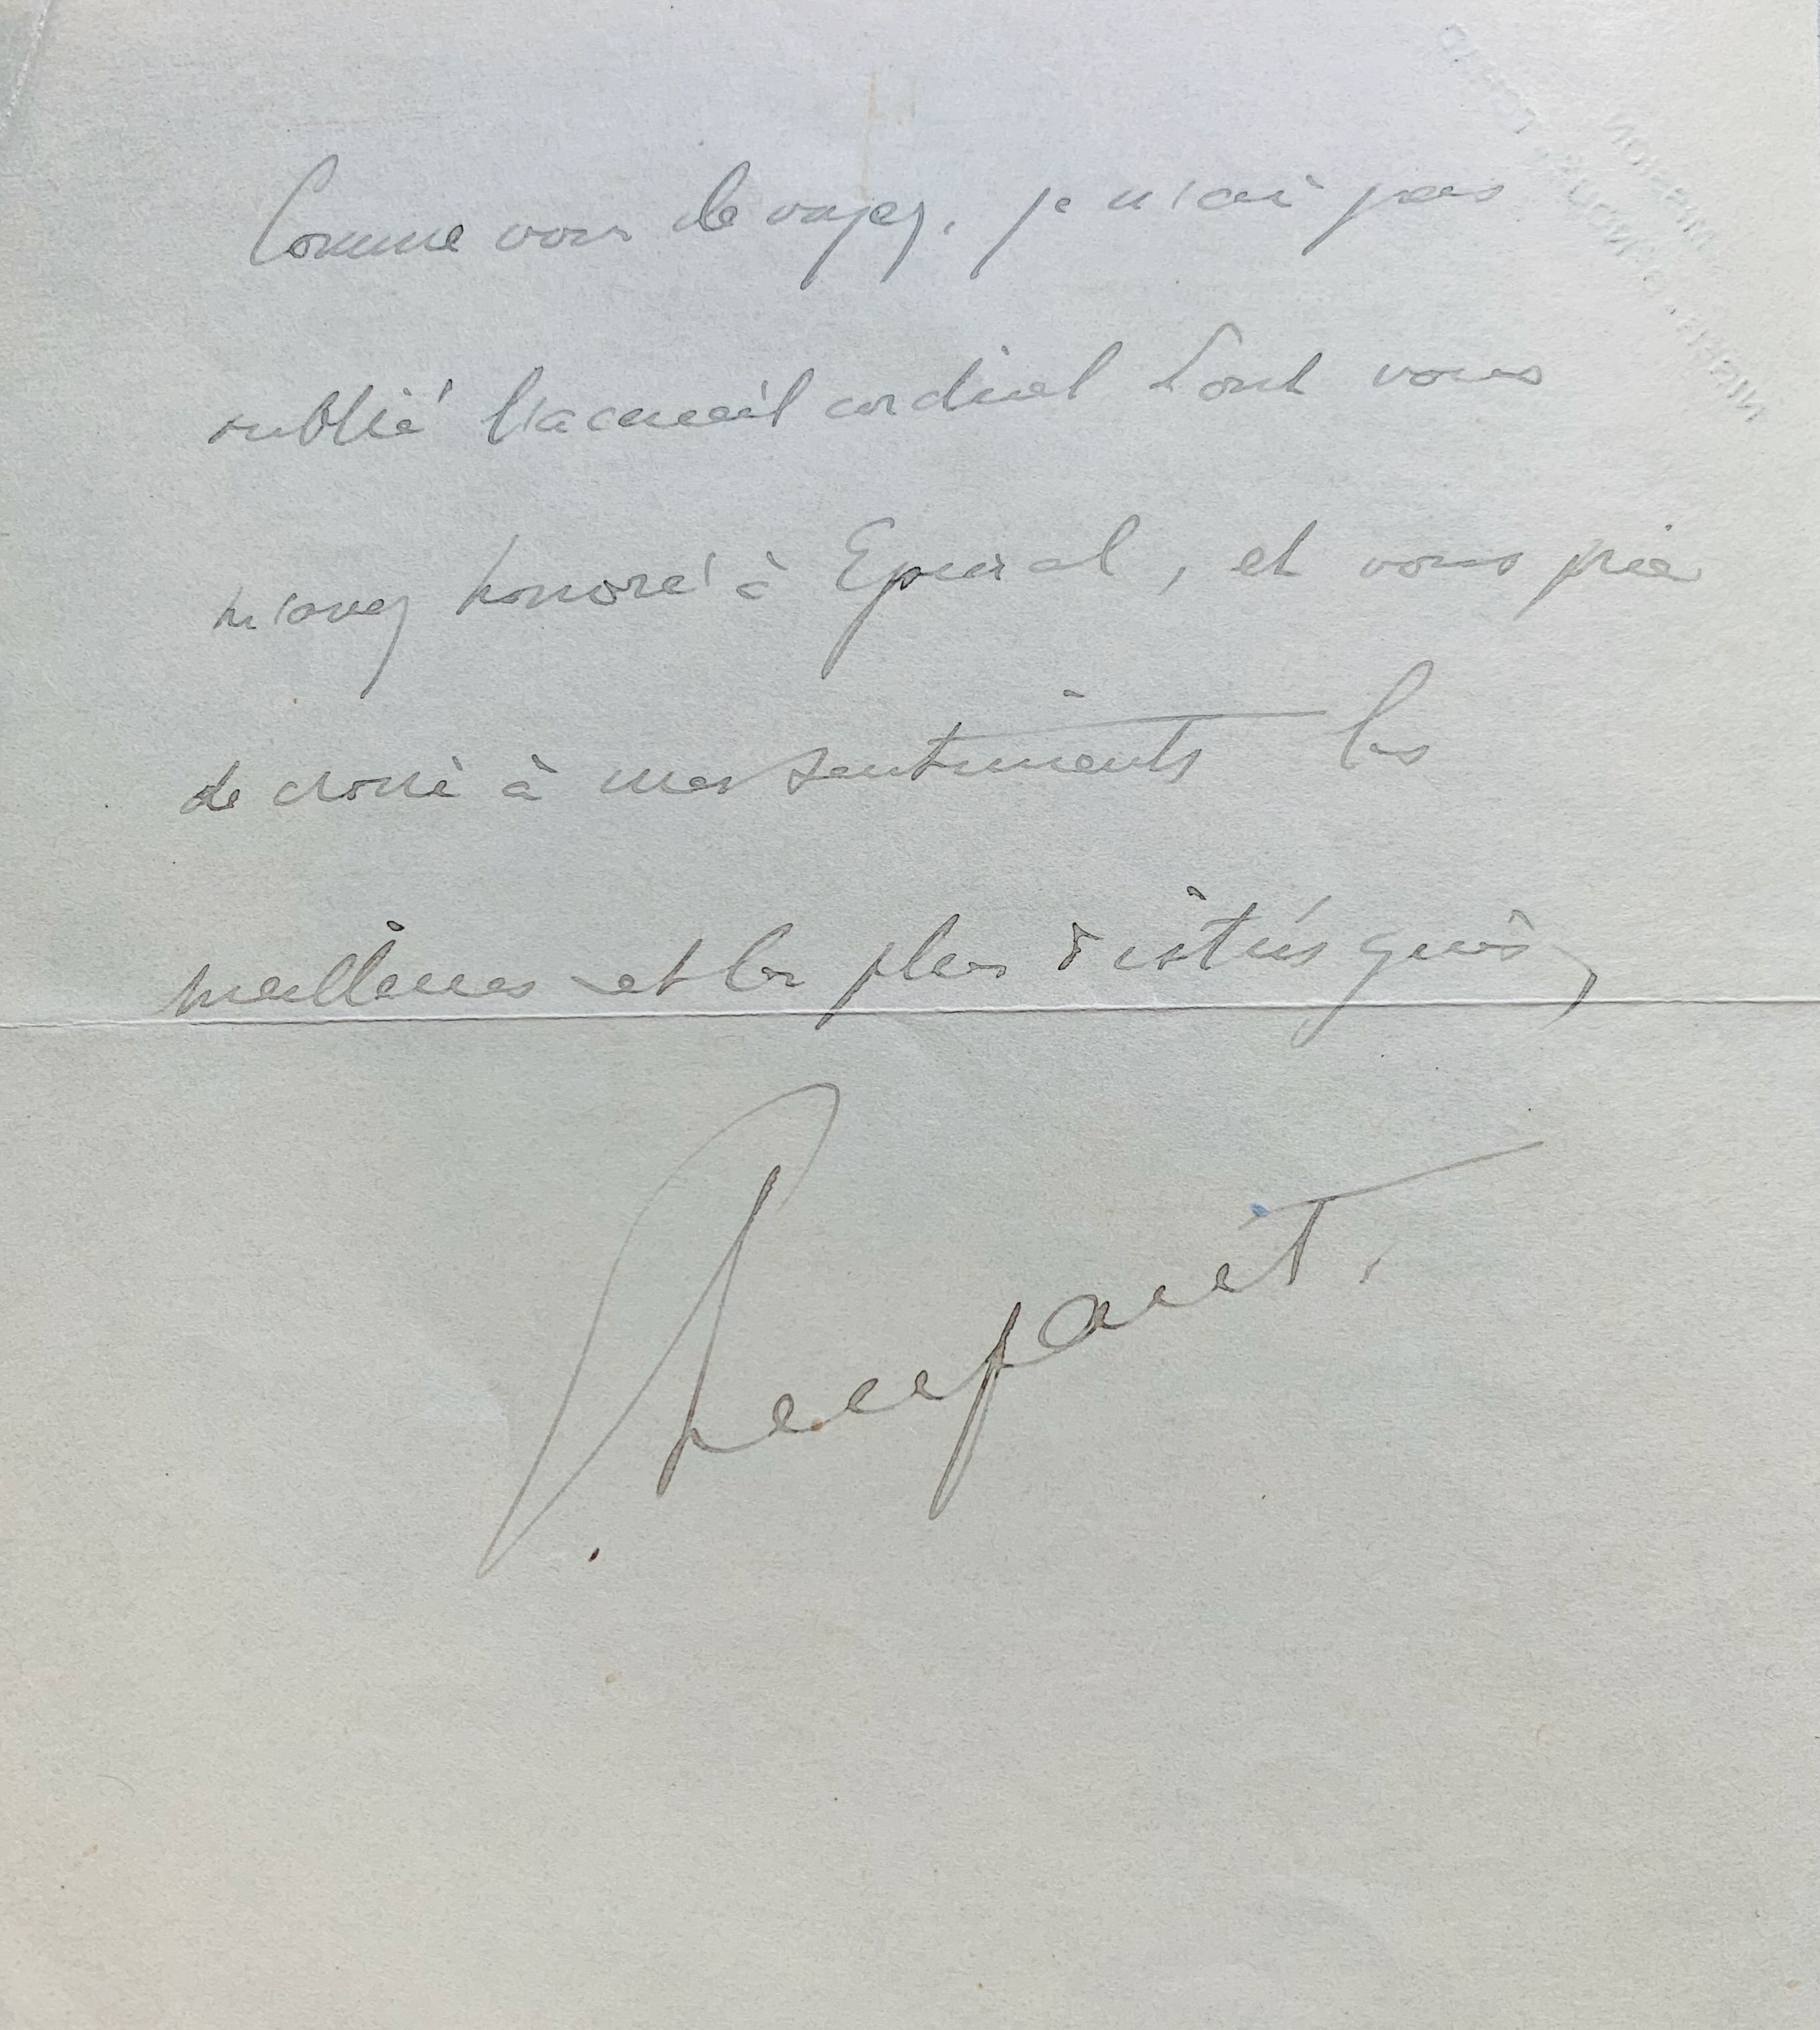 Comme vous le voyez, je n'ai pas
oublié l'accueil cordial dont vous
m'avez honoré à Epinal, et vous prie
de croire à mes sentiments les
meilleurs et les plus distingués,